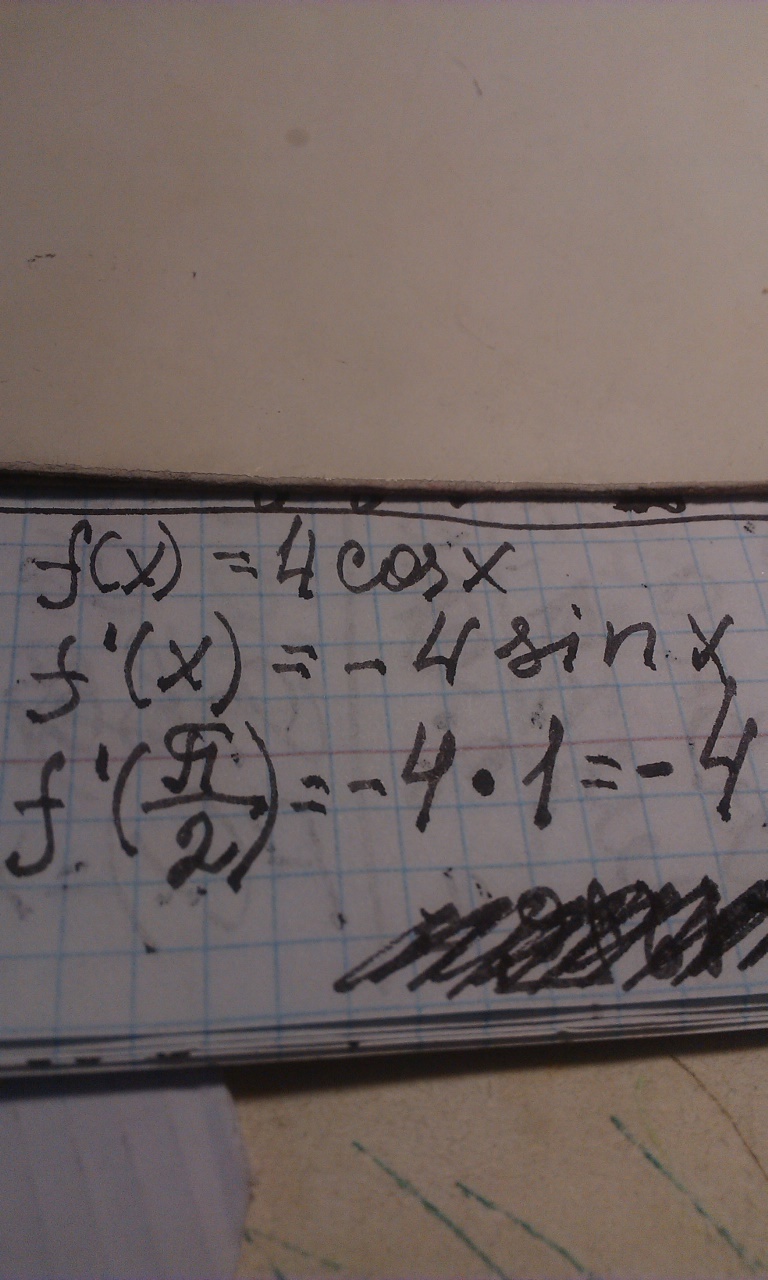 f(x) = 4 cos x
f'(x) = - 4 sin x
f'(π/2) = - 4 · 1 = - 4